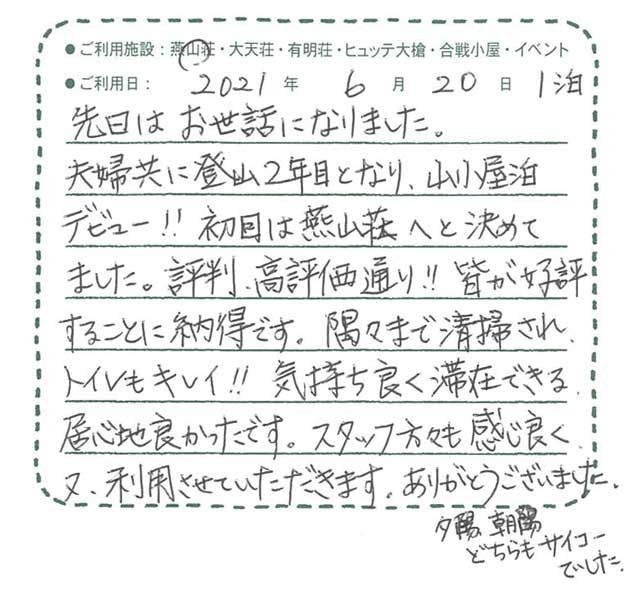 ●ご利用施設：燕山荘・大天荘・有明荘・ヒュッテ大槍・合戦小屋・イベント
●ご利用日： 2021 年 6 月 20 日 1泊
先日は お世話になりました。
夫婦共に登山2年目となり、山小屋泊
デビュー!! 初回は燕山荘へと決めて
ました。評判、高評価通り!! 皆が好評
することに納得です。隅々まで清掃され、
トイレもキレイ!! 気持ち良く滞在できる、
居心地良かったです。スタッフ方々も感じ良く、
又、利用させていただきます。ありがとうございました。
夕陽、朝陽
どちらもサイコー
でした。